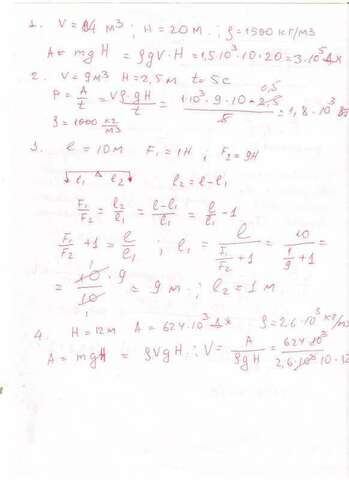 1. V = 14 м³ ; H = 20 м. ; ρ = 1500 кг/м3
A = mgH = ρgV·H = 1,5·10³·10·20 = 3·10⁵ Дж
2. V = 9 м³ H = 2,5 м t = 5 c
P = A/t = Vρ·gH/t = 1·10³·9·10·2,5/5 = 1,8·10³ Вт
0,5
ρ = 1000 кг/м3
3. l = 10 м F₁ = 1H ; F₂ = 9H
l₁ l₂ l₂ = l - l₁
F₁/F₂ = l₂/l₁ = l-l₁/l₁ = l/l₁ - 1
F₁/F₂ + 1 = l/l₁ ; l₁ = l/(F₁/F₂ + 1) = 10/(1/9 + 1) =
= 10·9/10 = 9 м ; l₂ = 1 м
4. H = 12 м A = 624·10³ Дж ρ = 2,6·10³ кг/м3
A = mgH = ρVgH ; V = A/ρgH = 624·10³/2,6·10³·10·12